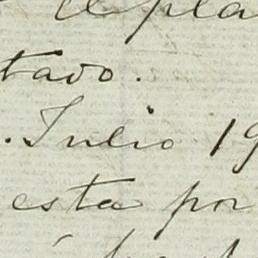 el pla
tado.
. Julio 19
esta por